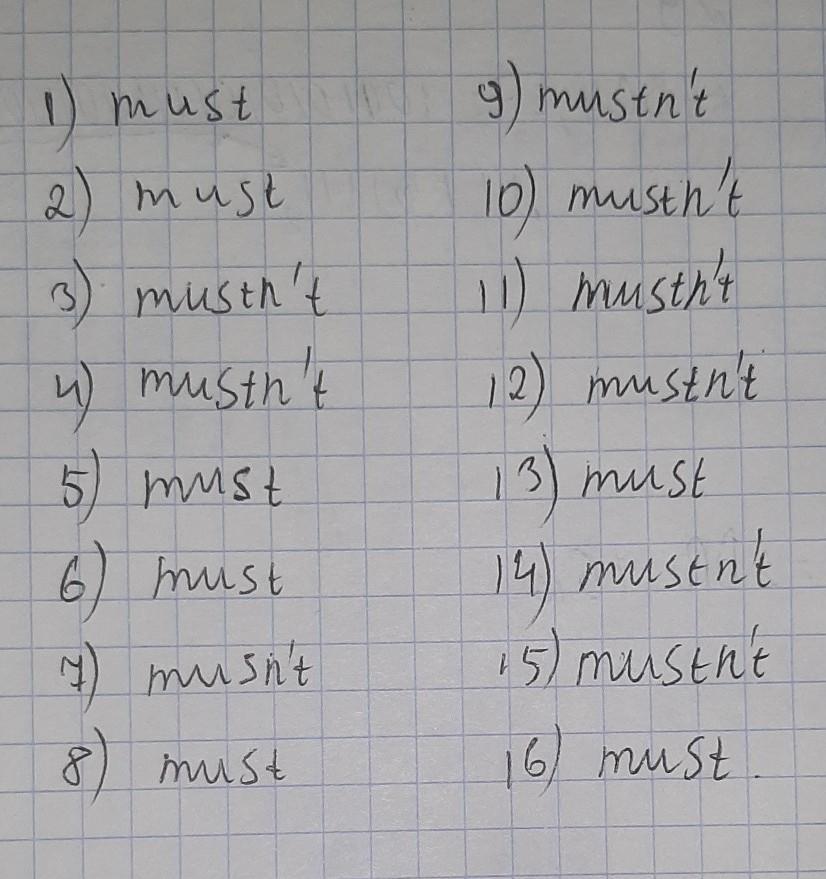 1) must
2) must
3) mustn't
4) mustn't
5) must
6) must
7) musn't
8) must
9) mustn't
10) mustn't
11) mustn't
12) mustn't
13) must
14) mustn't
15) mustn't
16) must.